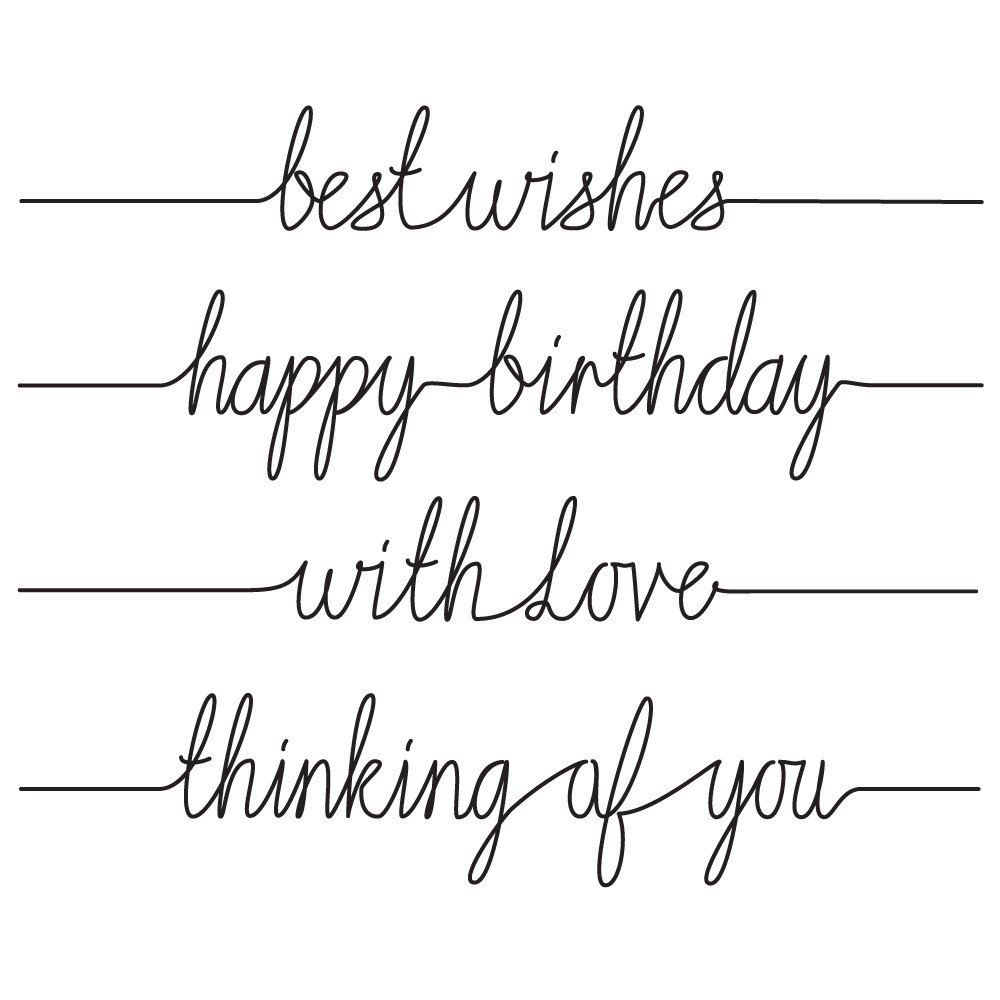 best wishes
happy birthday
with love
thinking of you